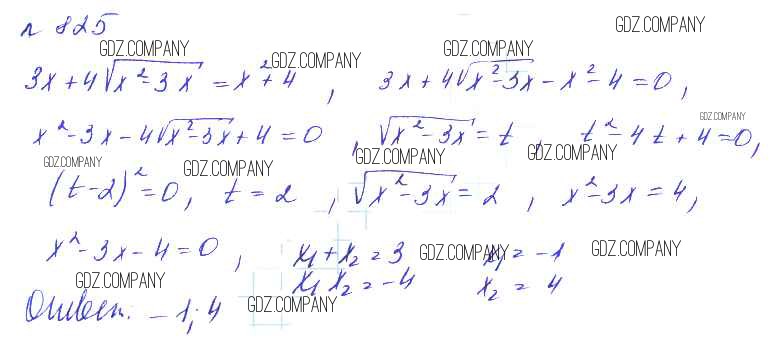 n 825
GDZ.COMPANY
GDZ.COMPANY GDZ.COMPANY GDZ.COMPANY
3x+4√(x²-3x) = x²+4, 3x+4√(x²-3x) - x² - 4 = 0,
GDZ.COMPANY
x²-3x-4√(x²-3x)+4=0, √(x²-3x) = t, t²-4t+4=0,
GDZ.COMPANY GDZ.COMPANY GDZ.COMPANY GDZ.COMPANY
(t-2)²=0, t=2, √(x²-3x)=2, x²-3x=4,
x²-3x-4=0, x₁+x₂=3 GDZ.COMPANY x₁=-1 GDZ.COMPANY
GDZ.COMPANY x₁x₂=-4 x₂=4
Ответ: -1; 4 GDZ.COMPANY